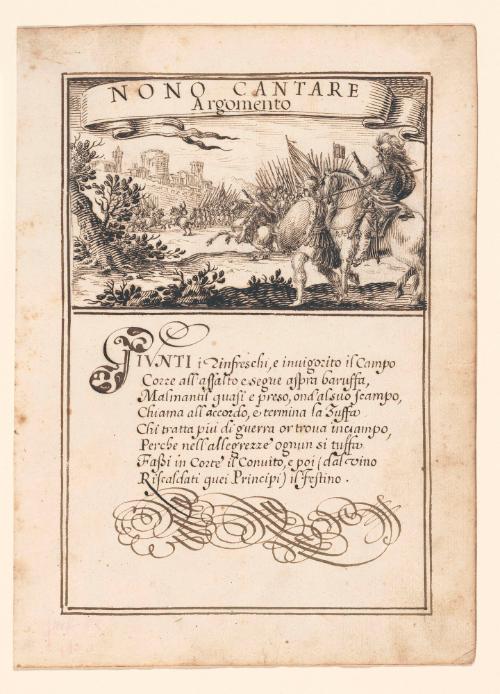 NONO CANTARE
Argomento
GIVNTI i Rinfreschi, e inuigorito il Campo
Corre all'assalto e segue aspra baruffa,
Malmantil quasi e preso, ond'al suo scampo,
Chiama all'accordo, e termina la Zuffa.
Chi tratta piu di guerra or troua inciampo,
Perche nell'allegrezze ognun si tuffa
Fassi in Corte il Conuito, e poi (dal vino
Riscaldati quei Principi) il festino.